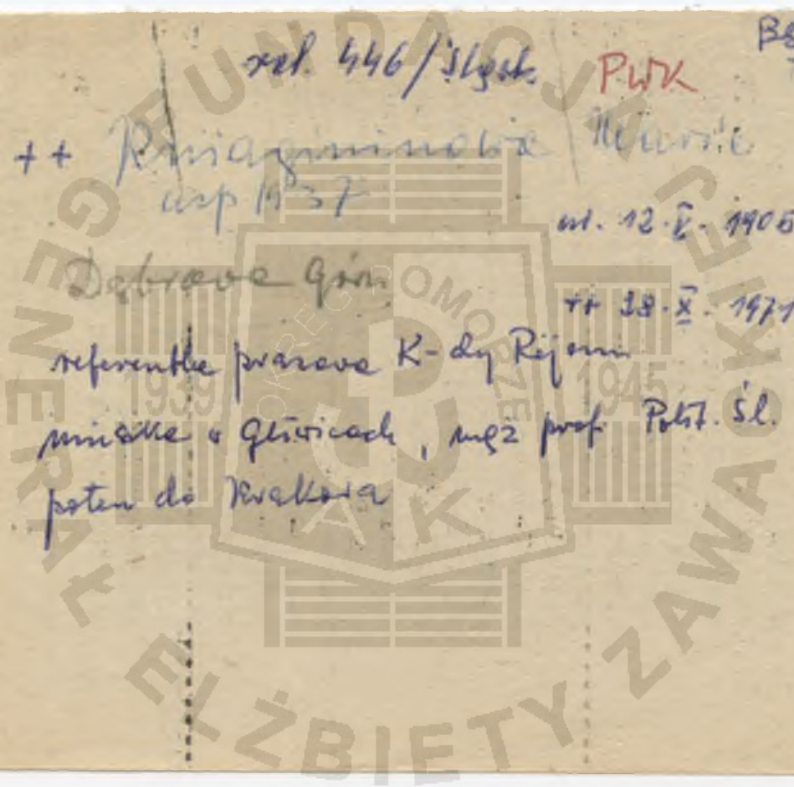 446/Śląsk. PWK
++ Kniagininowa Maria
1937
ur. 12.V.1905
Dąbrowa Górn.
++ 28.X.1971
referentka prasowa K-dy Rejonu
mieszka w Gliwicach, mąż prof. Polit. Śl.
potem do Krakowa
FUNDACJA GENERAŁ ELŻBIETY ZAWACKIEJ
OKRĘG POMORZE
1939 1945
AK